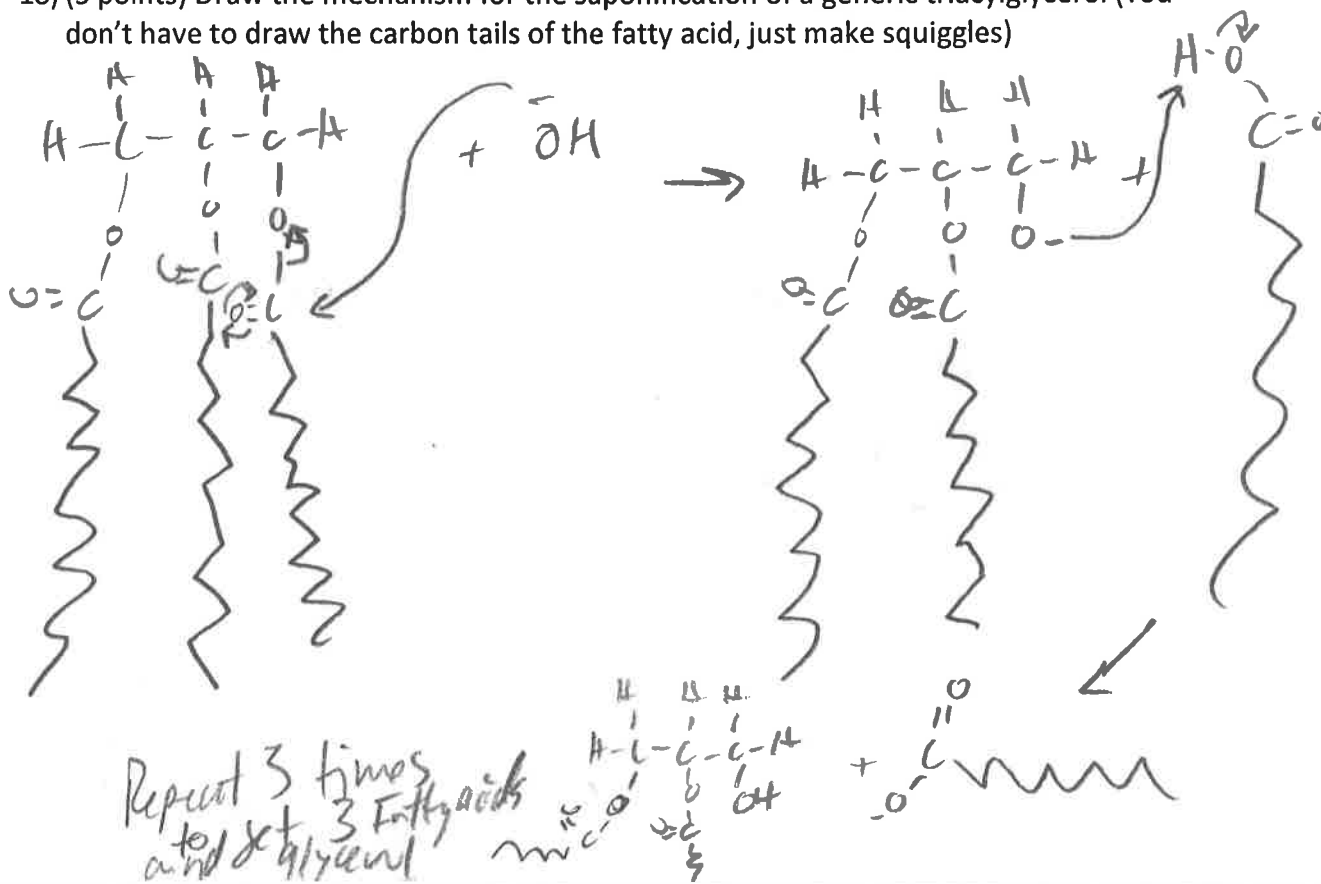 don't have to draw the carbon tails of the fatty acid, just make squiggles)
H H H
H-C-C-C-H + -OH
O O O
O=C O=C O=C
H H H
H-C-C-C-H +
O O O-
O=C O=C
H-O
C=O
H H H
H-C-C-C-H + C=O
O O OH -O
O=C O=C
Repeat 3 times
to get 3 Fatty acids
and glycerol